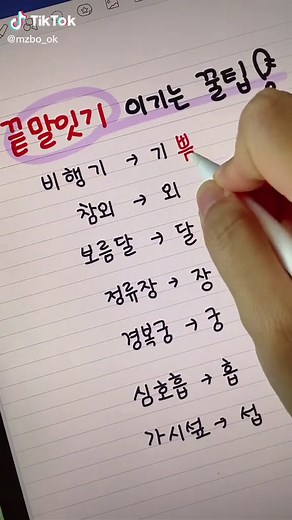 TikTok
@mzbo_ok
끝말잇기 이기는 꿀팁
비행기 → 기쁨
참외 → 외
보름달 → 달
정류장 → 장
경복궁 → 궁
심호흡 → 흡
가시섶 → 섭